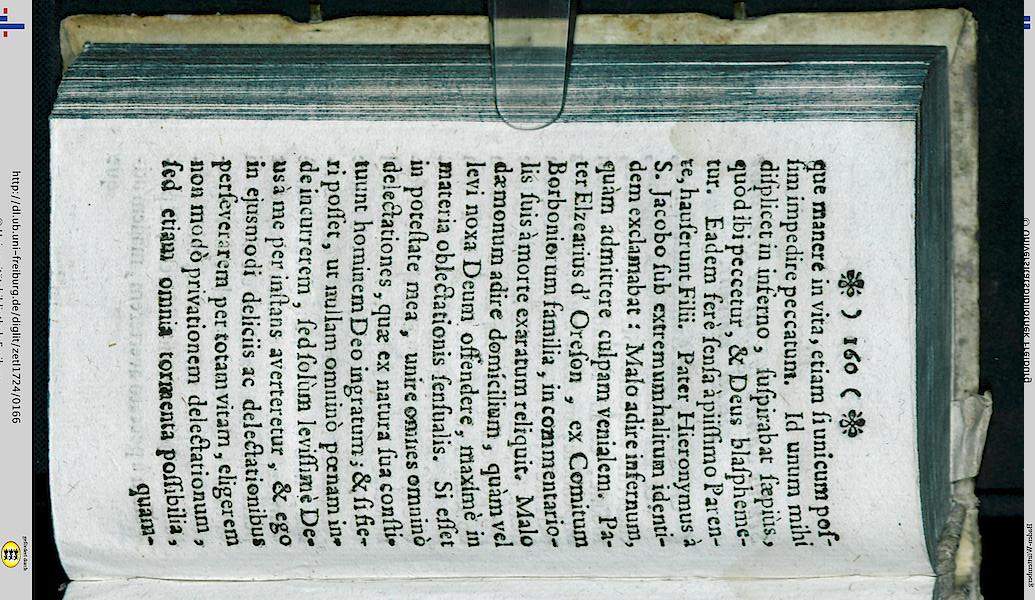 ❧ ) 160 ( ❧
que manere in vita, etiam si unicum pos-
sim impedire peccatum. Id unum mihi
displicet in inferno, suspirabat sæpiùs,
quod ibi peccetur, & Deus blaspheme-
tur. Eadem ferè sensa à piissimo Paren-
te, hauserunt Filii. Pater Hieronymus à
S. Jacobo sub extremum halitum identi-
dem exclamabat: Malo adire infernum,
quàm admittere culpam venialem. Pa-
ter Elzearius d' Oreson, ex Comitum
Borboniorum familia, in commentario-
lis suis à morte exaratum reliquit. Malo
dæmonum adire domicilium, quàm vel
levi noxa Deum offendere, maximè in
materia oblectationis sensualis. Si esset
in potestate mea, unire omnes omninò
delectationes, quæ ex natura sua consti-
tuunt hominem Deo ingratum; & si fie-
ri posset, ut nullam omninò pœnam in-
de incurrerem, sed solùm levissimè De-
us à me per instans averteretur, & ego
in ejusmodi deliciis ac delectationibus
perseverarem per totam vitam, eligerem
non modò privationem delectationum,
sed etiam omnia tormenta possibilia,
quam-
http://dl.ub.uni-freiburg.de/diglit/zetl1724/0166
© Universitätsbibliothek Freiburg
gefördert durch